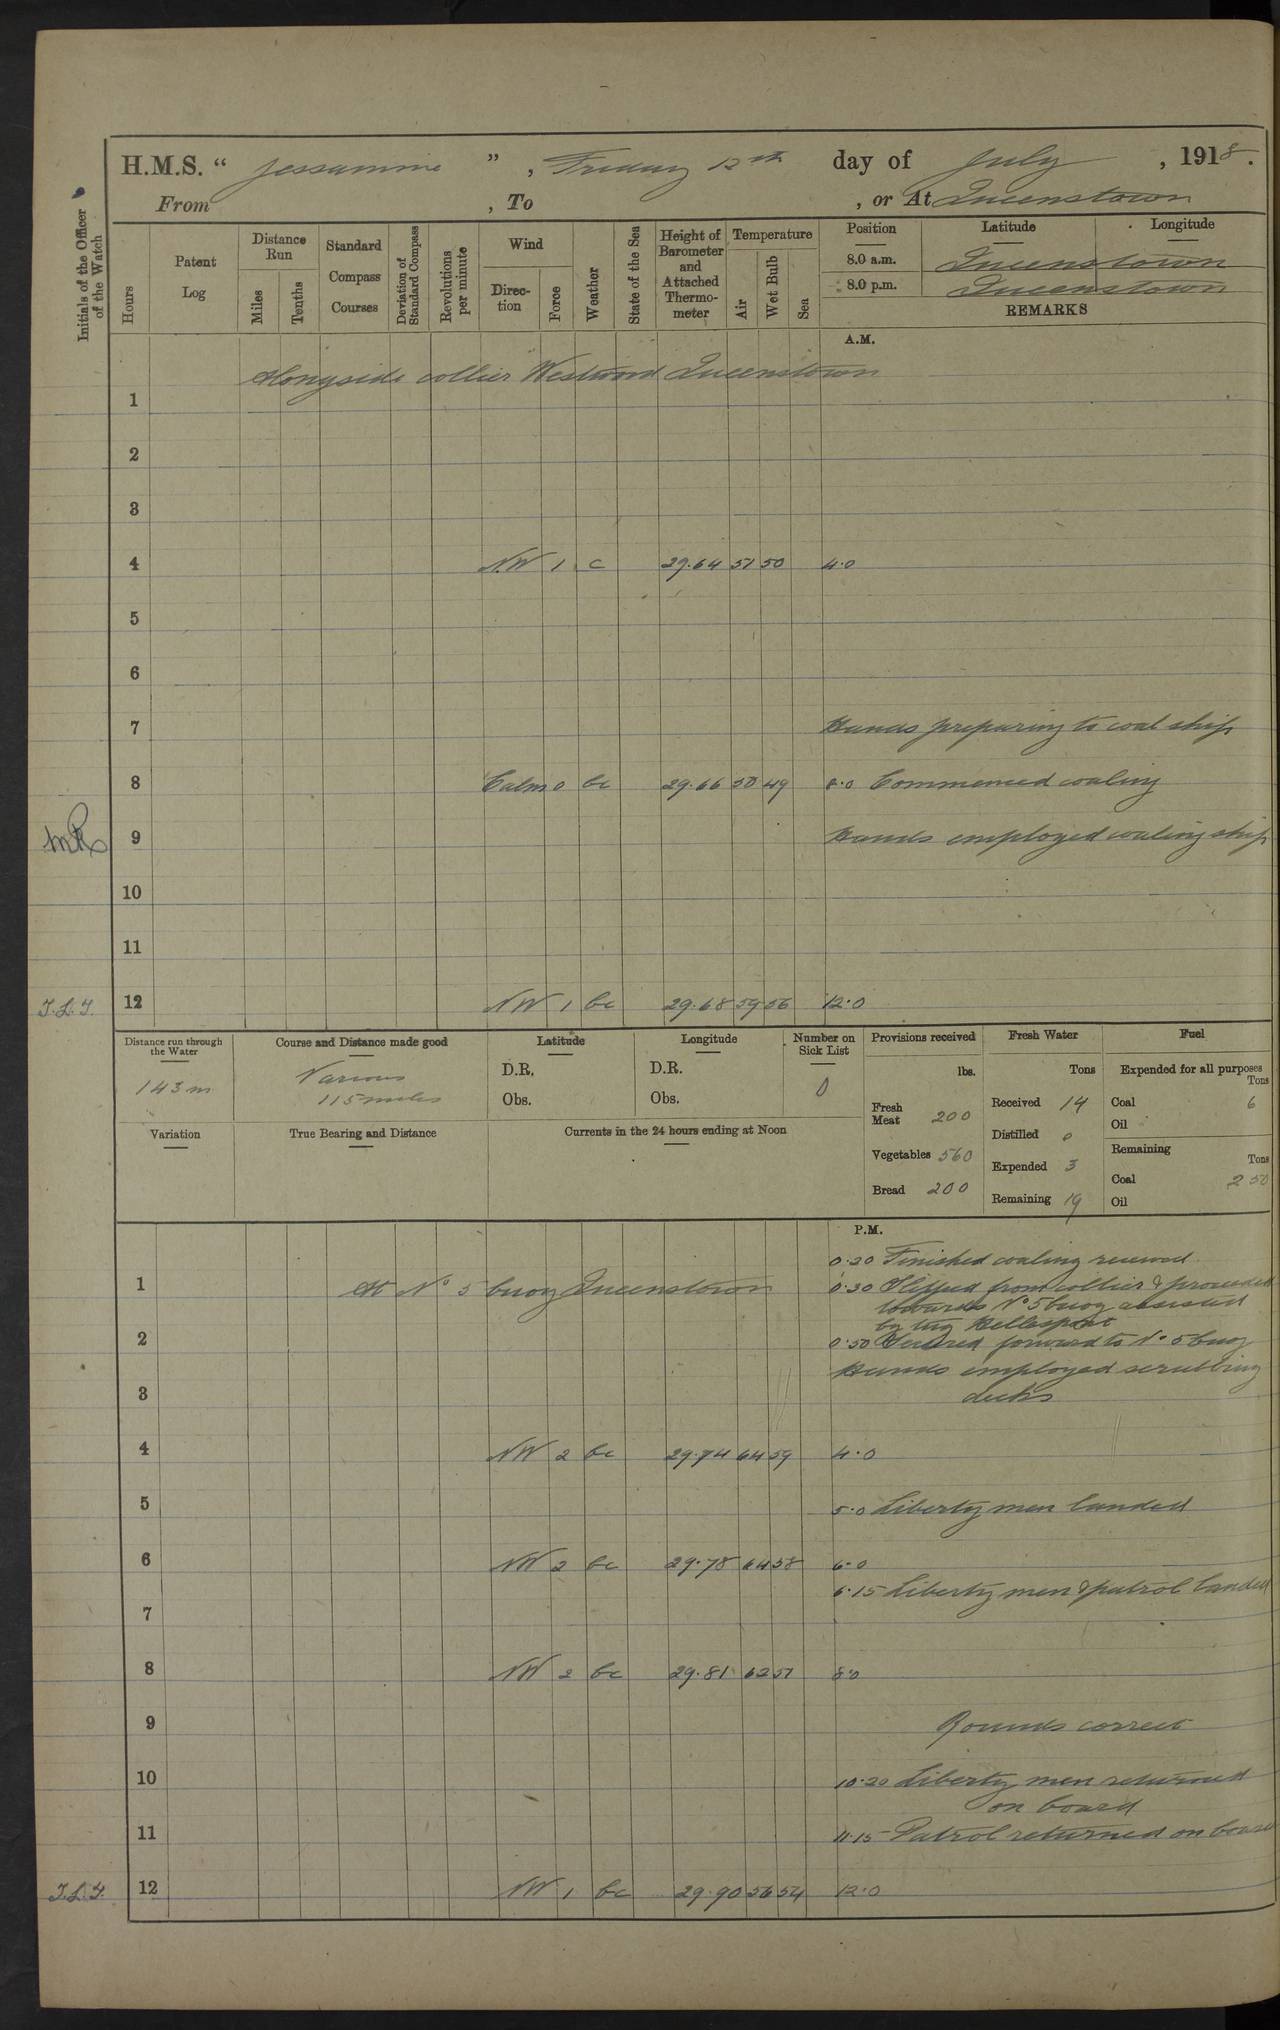 H.M.S. “ Jessamine ” , Friday 12th day of July , 1918.
From , To , or At Queenstown
Initials of the Officer of the Watch
Hours
Patent Log
Distance Run
Miles
Tenths
Standard Compass Courses
Deviation of Standard Compass
Revolutions per minute
Wind
Direction
Force
Weather
State of the Sea
Height of Barometer and Attached Thermometer
Temperature
Air
Wet Bulb
Sea
Position Latitude Longitude
8.0 a.m. Queenstown
8.0 p.m. Queenstown
REMARKS
A.M.
Alongside collier Westwood Queenstown
1
2
3
4 N.W 1 c 29.64 51 50 4.0
5
6
7 Hands preparing to coal ship
8 Calm 0 bc 29.66 50 49 8.0 Commenced coaling
9 Hands employed coaling ship
10
11
12 NW 1 bc 29.68 59 56 12.0
Distance run through the Water
143 m
Course and Distance made good
Various
115 miles
Latitude
D.R.
Obs.
Longitude
D.R.
Obs.
Number on Sick List
0
Provisions received
lbs.
Fresh Meat 200
Vegetables 560
Bread 200
Fresh Water
Tons
Received 14
Distilled 0
Expended 3
Remaining 19
Fuel
Expended for all purposes
Tons
Coal 6
Oil
Remaining
Tons
Coal 250
Oil
Variation
True Bearing and Distance
Currents in the 24 hours ending at Noon
P.M.
0.20 Finished coaling received
1 At No 5 buoy Queenstown 0.30 Slipped from collier & proceeded
towards No 5 buoy assisted
by tug Hellespont
2 0.50 Secured forward to No 5 buoy
Hands employed scrubbing
3 decks
4 NW 2 bc 29.74 64 59 4.0
5 5.0 Liberty men landed
6 NW 2 bc 29.78 64 58 6.0
6.15 Liberty men & patrol landed
7
8 NW 2 bc 29.81 62 57 8.0
9 Rounds correct
10 10.20 Liberty men returned
on board
11 11.15 Patrol returned on board
12 NW 1 bc 29.90 56 54 12.0